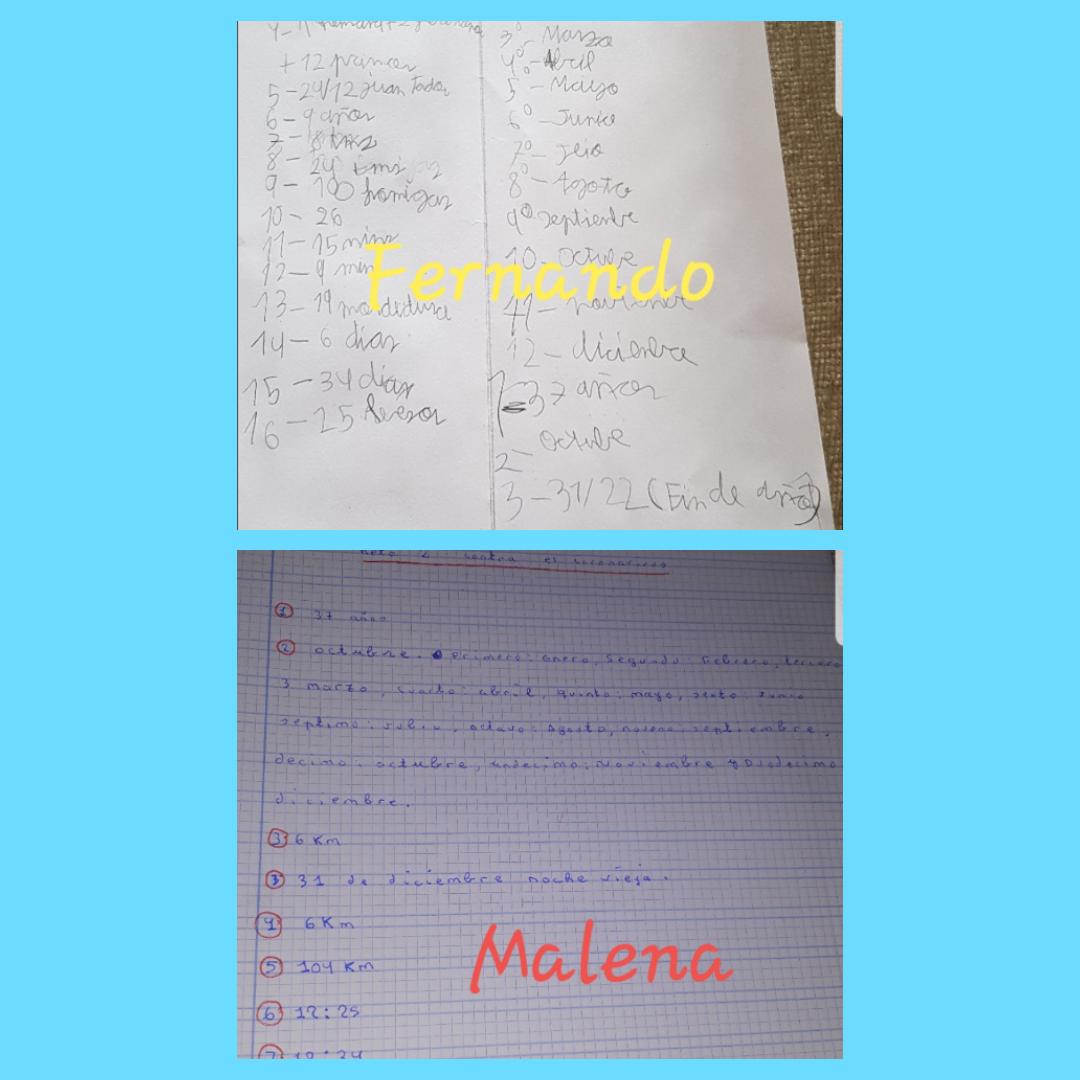 + 12 primos
5 - 24/12 Juan Tador
6 - 9 años
7 -
8 - 24
9 - 100 hormigas
10 - 26
11 - 15 mins
12 - 9 min
13 - 19 mordedura
14 - 6 dias
15 - 34 dias
16 - 25 besos
3º - Marzo
4º - Abril
5º - Mayo
6º - Junio
7º -
8º - Agosto
9º septienbre
10 - octubre
11 -
12 - diciembre
1 - 37 años
octubre
2 -
3 - 31/22 (Fin de año)
Fernando
contra el
1 37 años
2 octubre. primero: enero, segundo: febrero, tercero
3 marzo, cuarto: abril, quinto: mayo, sexto: junio
septimo: julio, octavo: agosto, noveno: septiembre,
decimo: octubre, undecimo: noviembre y duodecimo
diciembre.
3 6 Km
3 31 de diciembre noche vieja.
4 6 Km
5 104 Km
6 12:25
7
Malena